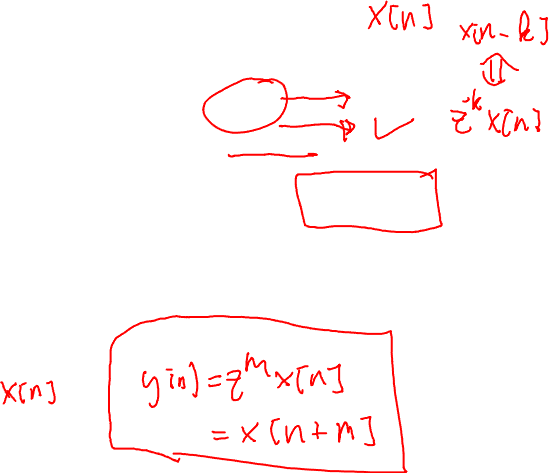 x[n] x[n-k]
⇕
z^-k x[n]
x[n]
y[n] = z^m x[n]
= x[n+m]